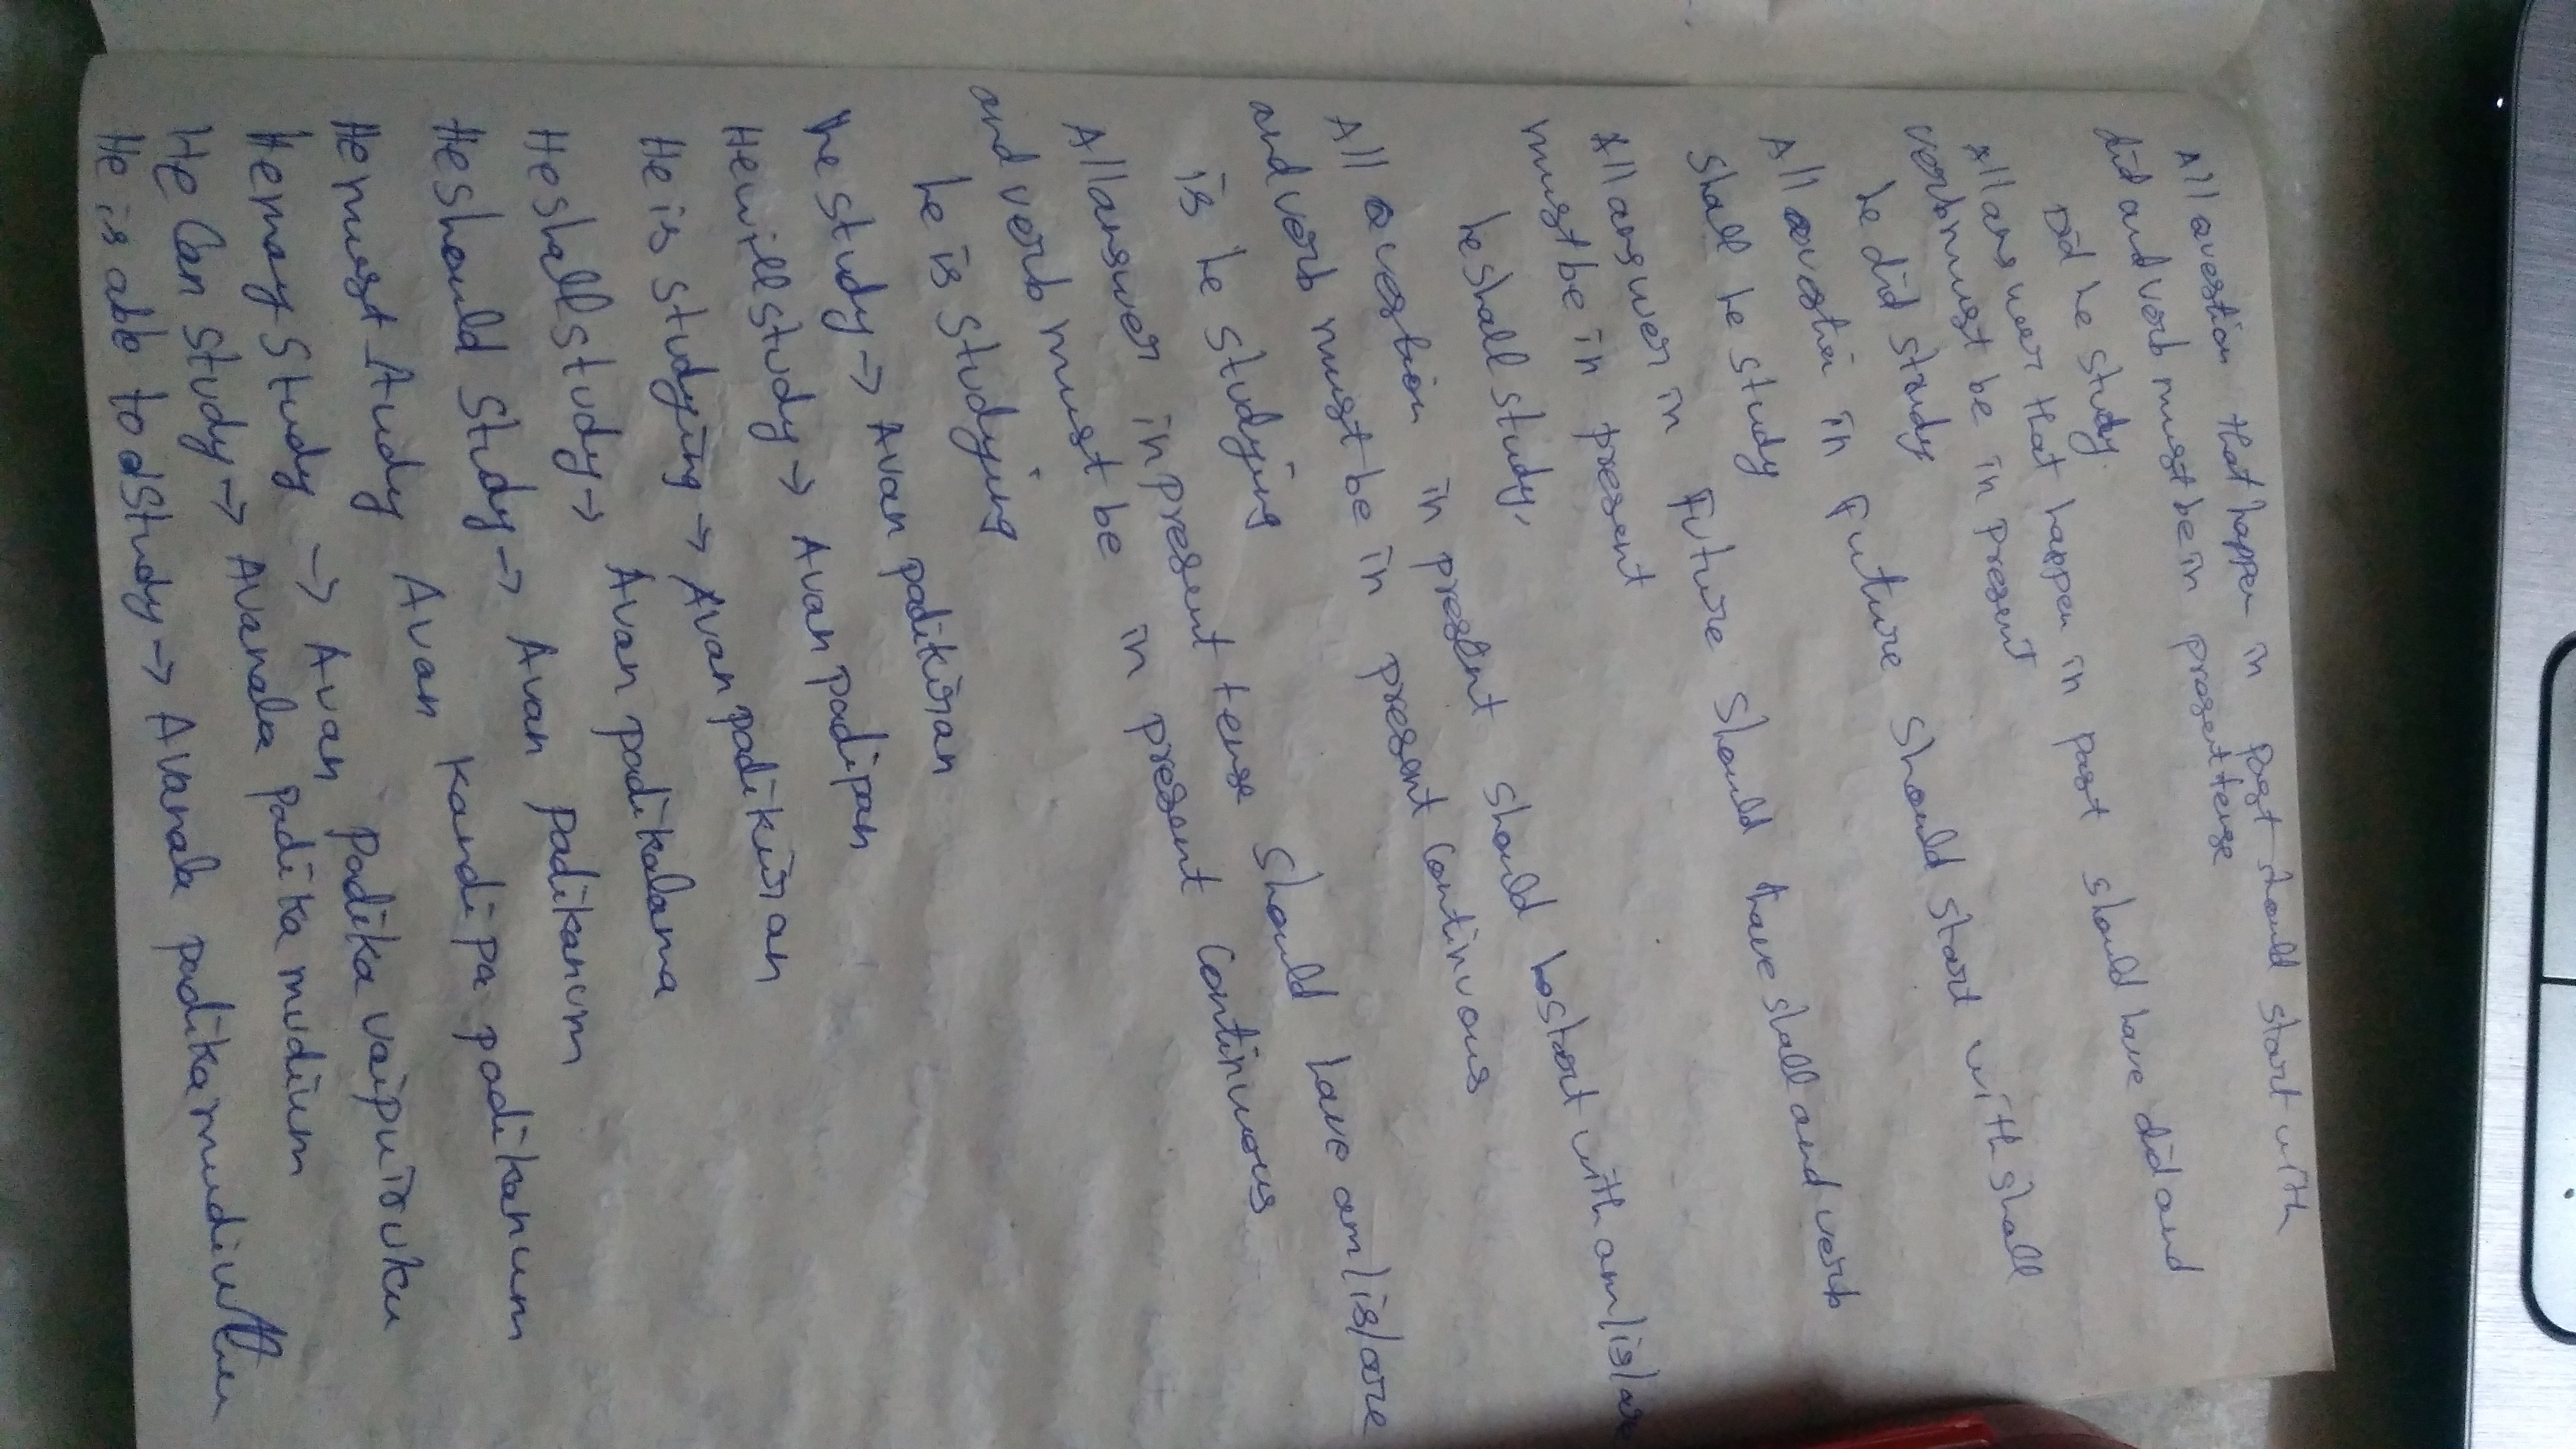 All question that happen in past should start with
did and verb must be in present tense
Did he study.
All answer that happen in past should have did and
verb must be in present
he did study
All question in Future should start with shall
shall he study
All answer in Future should have shall and verb
must be in present
he shall study.
All question in present should start with am/is/are
and verb must be in present continuous
is he studying
All answer in present tense should have am/is/are
and verb must be in present continuous
he is studying
he study → Avan padikiran
He will study → Avan padipan
He is studying → Avan padikiran
He shall study → Avan padikalama
He should study → Avan padikanum
He must study Avan kandipa padikanum
He may study → Avan padika vaipuiruku
He can study → Avanala padika mudium
He is able to study → Avanala padika mudium